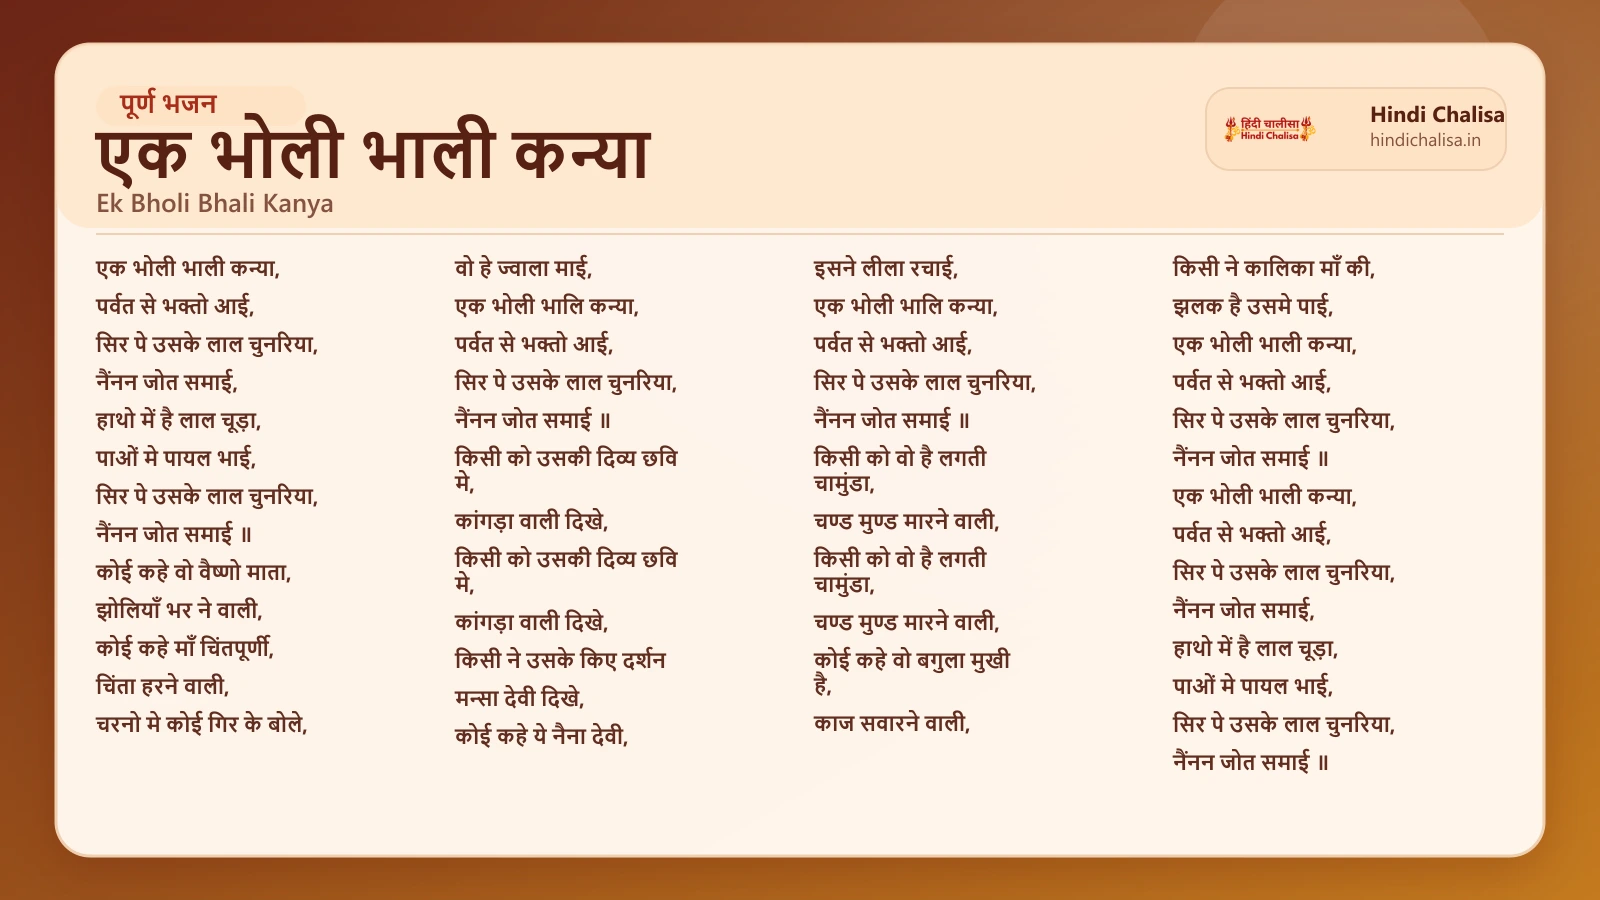 पूर्ण भजन
एक भोली भाली कन्या
Ek Bholi Bhali Kanya
हिंदी चालीसा
Hindi Chalisa
Hindi Chalisa
hindichalisa.in
एक भोली भाली कन्या,
पर्वत से भक्तो आई,
सिर पे उसके लाल चुनरिया,
नैंनन जोत समाई,
हाथो में है लाल चूड़ा,
पाओं मे पायल भाई,
सिर पे उसके लाल चुनरिया,
नैंनन जोत समाई ॥
कोई कहे वो वैष्णो माता,
झोलियाँ भर ने वाली,
कोई कहे माँ चिंतपूर्णी,
चिंता हरने वाली,
चरनो मे कोई गिर के बोले,
वो हे ज्वाला माई,
एक भोली भालि कन्या,
पर्वत से भक्तो आई,
सिर पे उसके लाल चुनरिया,
नैंनन जोत समाई ॥
किसी को उसकी दिव्य छवि
मे,
कांगड़ा वाली दिखे,
किसी को उसकी दिव्य छवि
मे,
कांगड़ा वाली दिखे,
किसी ने उसके किए दर्शन
मन्सा देवी दिखे,
कोई कहे ये नैना देवी,
इसने लीला रचाई,
एक भोली भालि कन्या,
पर्वत से भक्तो आई,
सिर पे उसके लाल चुनरिया,
नैंनन जोत समाई ॥
किसी को वो है लगती
चामुंडा,
चण्ड मुण्ड मारने वाली,
किसी को वो है लगती
चामुंडा,
चण्ड मुण्ड मारने वाली,
कोई कहे वो बगुला मुखी
है,
काज सवारने वाली,
किसी ने कालिका माँ की,
झलक है उसमे पाई,
एक भोली भाली कन्या,
पर्वत से भक्तो आई,
सिर पे उसके लाल चुनरिया,
नैंनन जोत समाई ॥
एक भोली भाली कन्या,
पर्वत से भक्तो आई,
सिर पे उसके लाल चुनरिया,
नैंनन जोत समाई,
हाथो में है लाल चूड़ा,
पाओं मे पायल भाई,
सिर पे उसके लाल चुनरिया,
नैंनन जोत समाई ॥